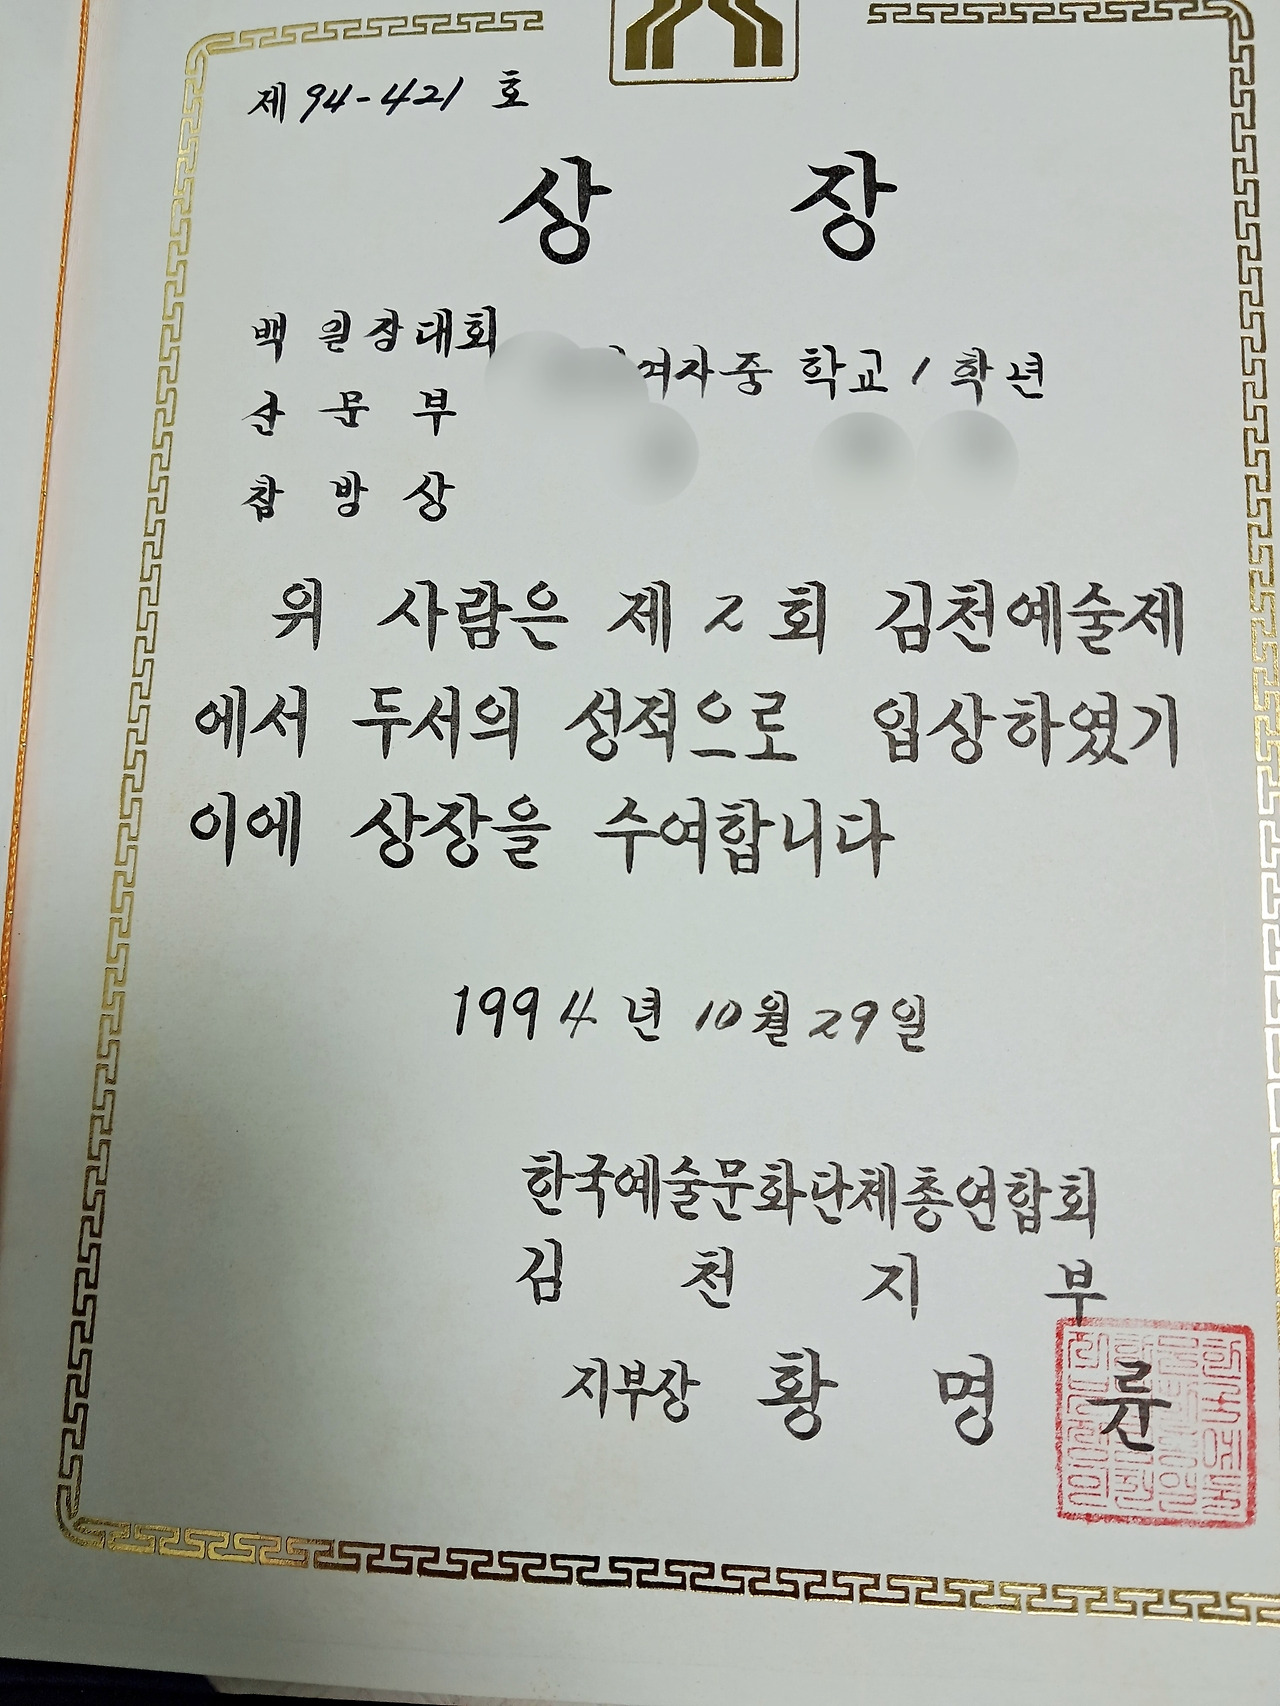 제 94-421 호
상 장
백 일장대회
산 문 부
참 방 상
여자중 학교 1 학년
위 사람은 제 2 회 김천예술제
에서 두서의 성적으로 입상하였기
이에 상장을 수여합니다
1994 년 10 월 29 일
한국예술문화단체총연합회
김 천 지 부
지부장 황 명 륜